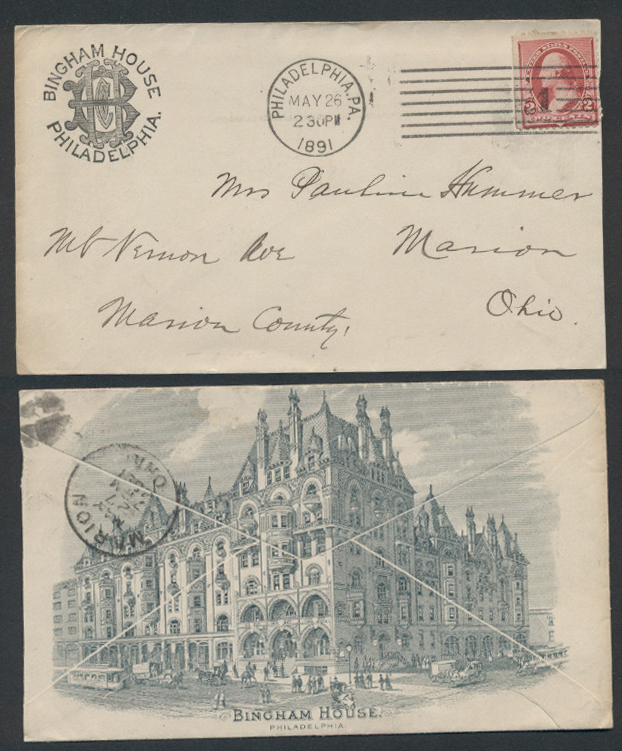 BINGHAM HOUSE
PHILADELPHIA.
PHILADELPHIA, PA.
MAY 26
2 30 PM
1891
1
2 2
TWO CENTS
Mrs Pauline Hummer
Mt Vernon Ave Marion
Marion County, Ohio.
MARION
OHIO
MAY
27
BINGHAM HOUSE.
PHILADELPHIA.